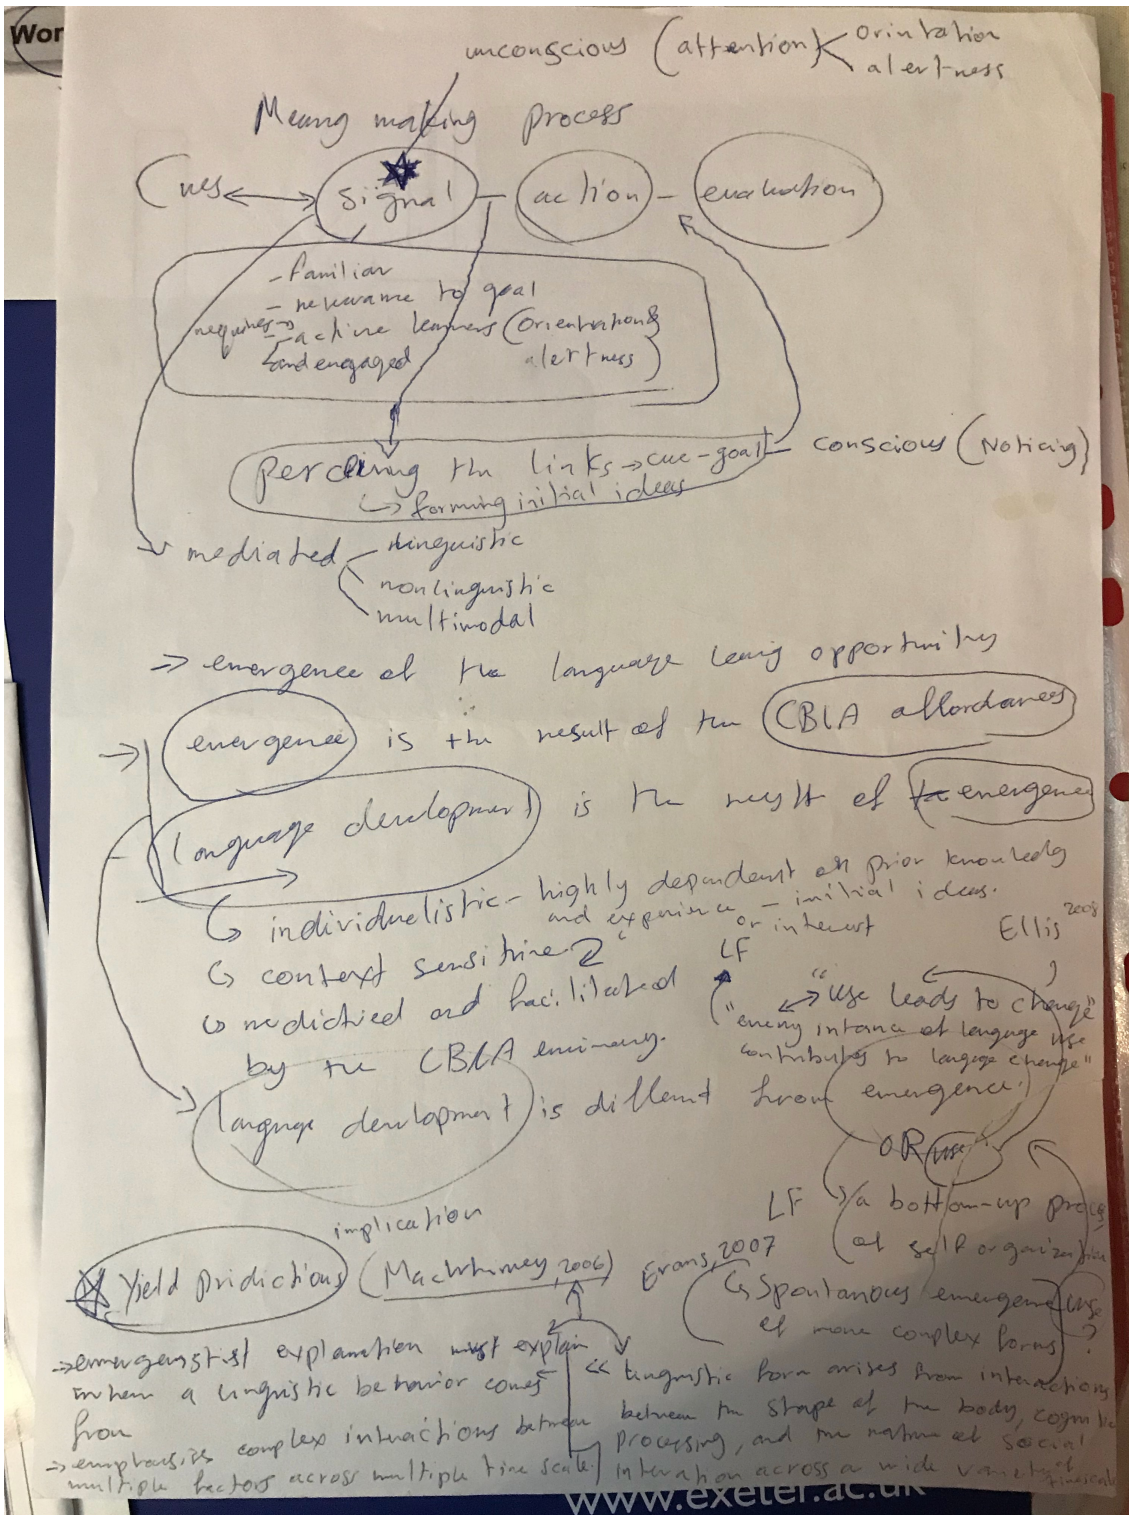 Wor
unconscious (attention) orintation
alertness
Meaning making process
Cues signal - action - evaluation
- familiar
- relevance to goal
requires - active learners (orientation &
and engaged alertness)
perceiving the links → cue-goal - conscious (Noticing)
↳ forming initial ideas
mediated linguistic
nonlinguistic
multimodal
⇒ emergence of the language leaing opportunity
→ emergence is the result of the CBLA affordances
language development is the result of emergence
↳ individualistic - highly dependent on prior knowledg
and experience - initial ideas.
or interest
↳ context sensitive LF Ellis 2008
↳ and facilitated "use leads to change"
by the CBLA "every intance of language use
contributes to langage change"
language development is different from emergence.
OR use
implication LF a bottom-up process
of self organization
Yield pridictions (MacWhinney, 2006) Evans, 2007
↳ Spontanous emergence use
of more complex forms ?
⇒ emergenstist explanation must explain
when a linguistic behavior comes
from
⇒ emphasizes complex interactions between
multiple factors across multiple time scale
"linguistic form arises from interactions
between the shape of the body, cognitive
processing, and the nature of social
interation across a wide variety of timescale
www.exeter.ac.uk